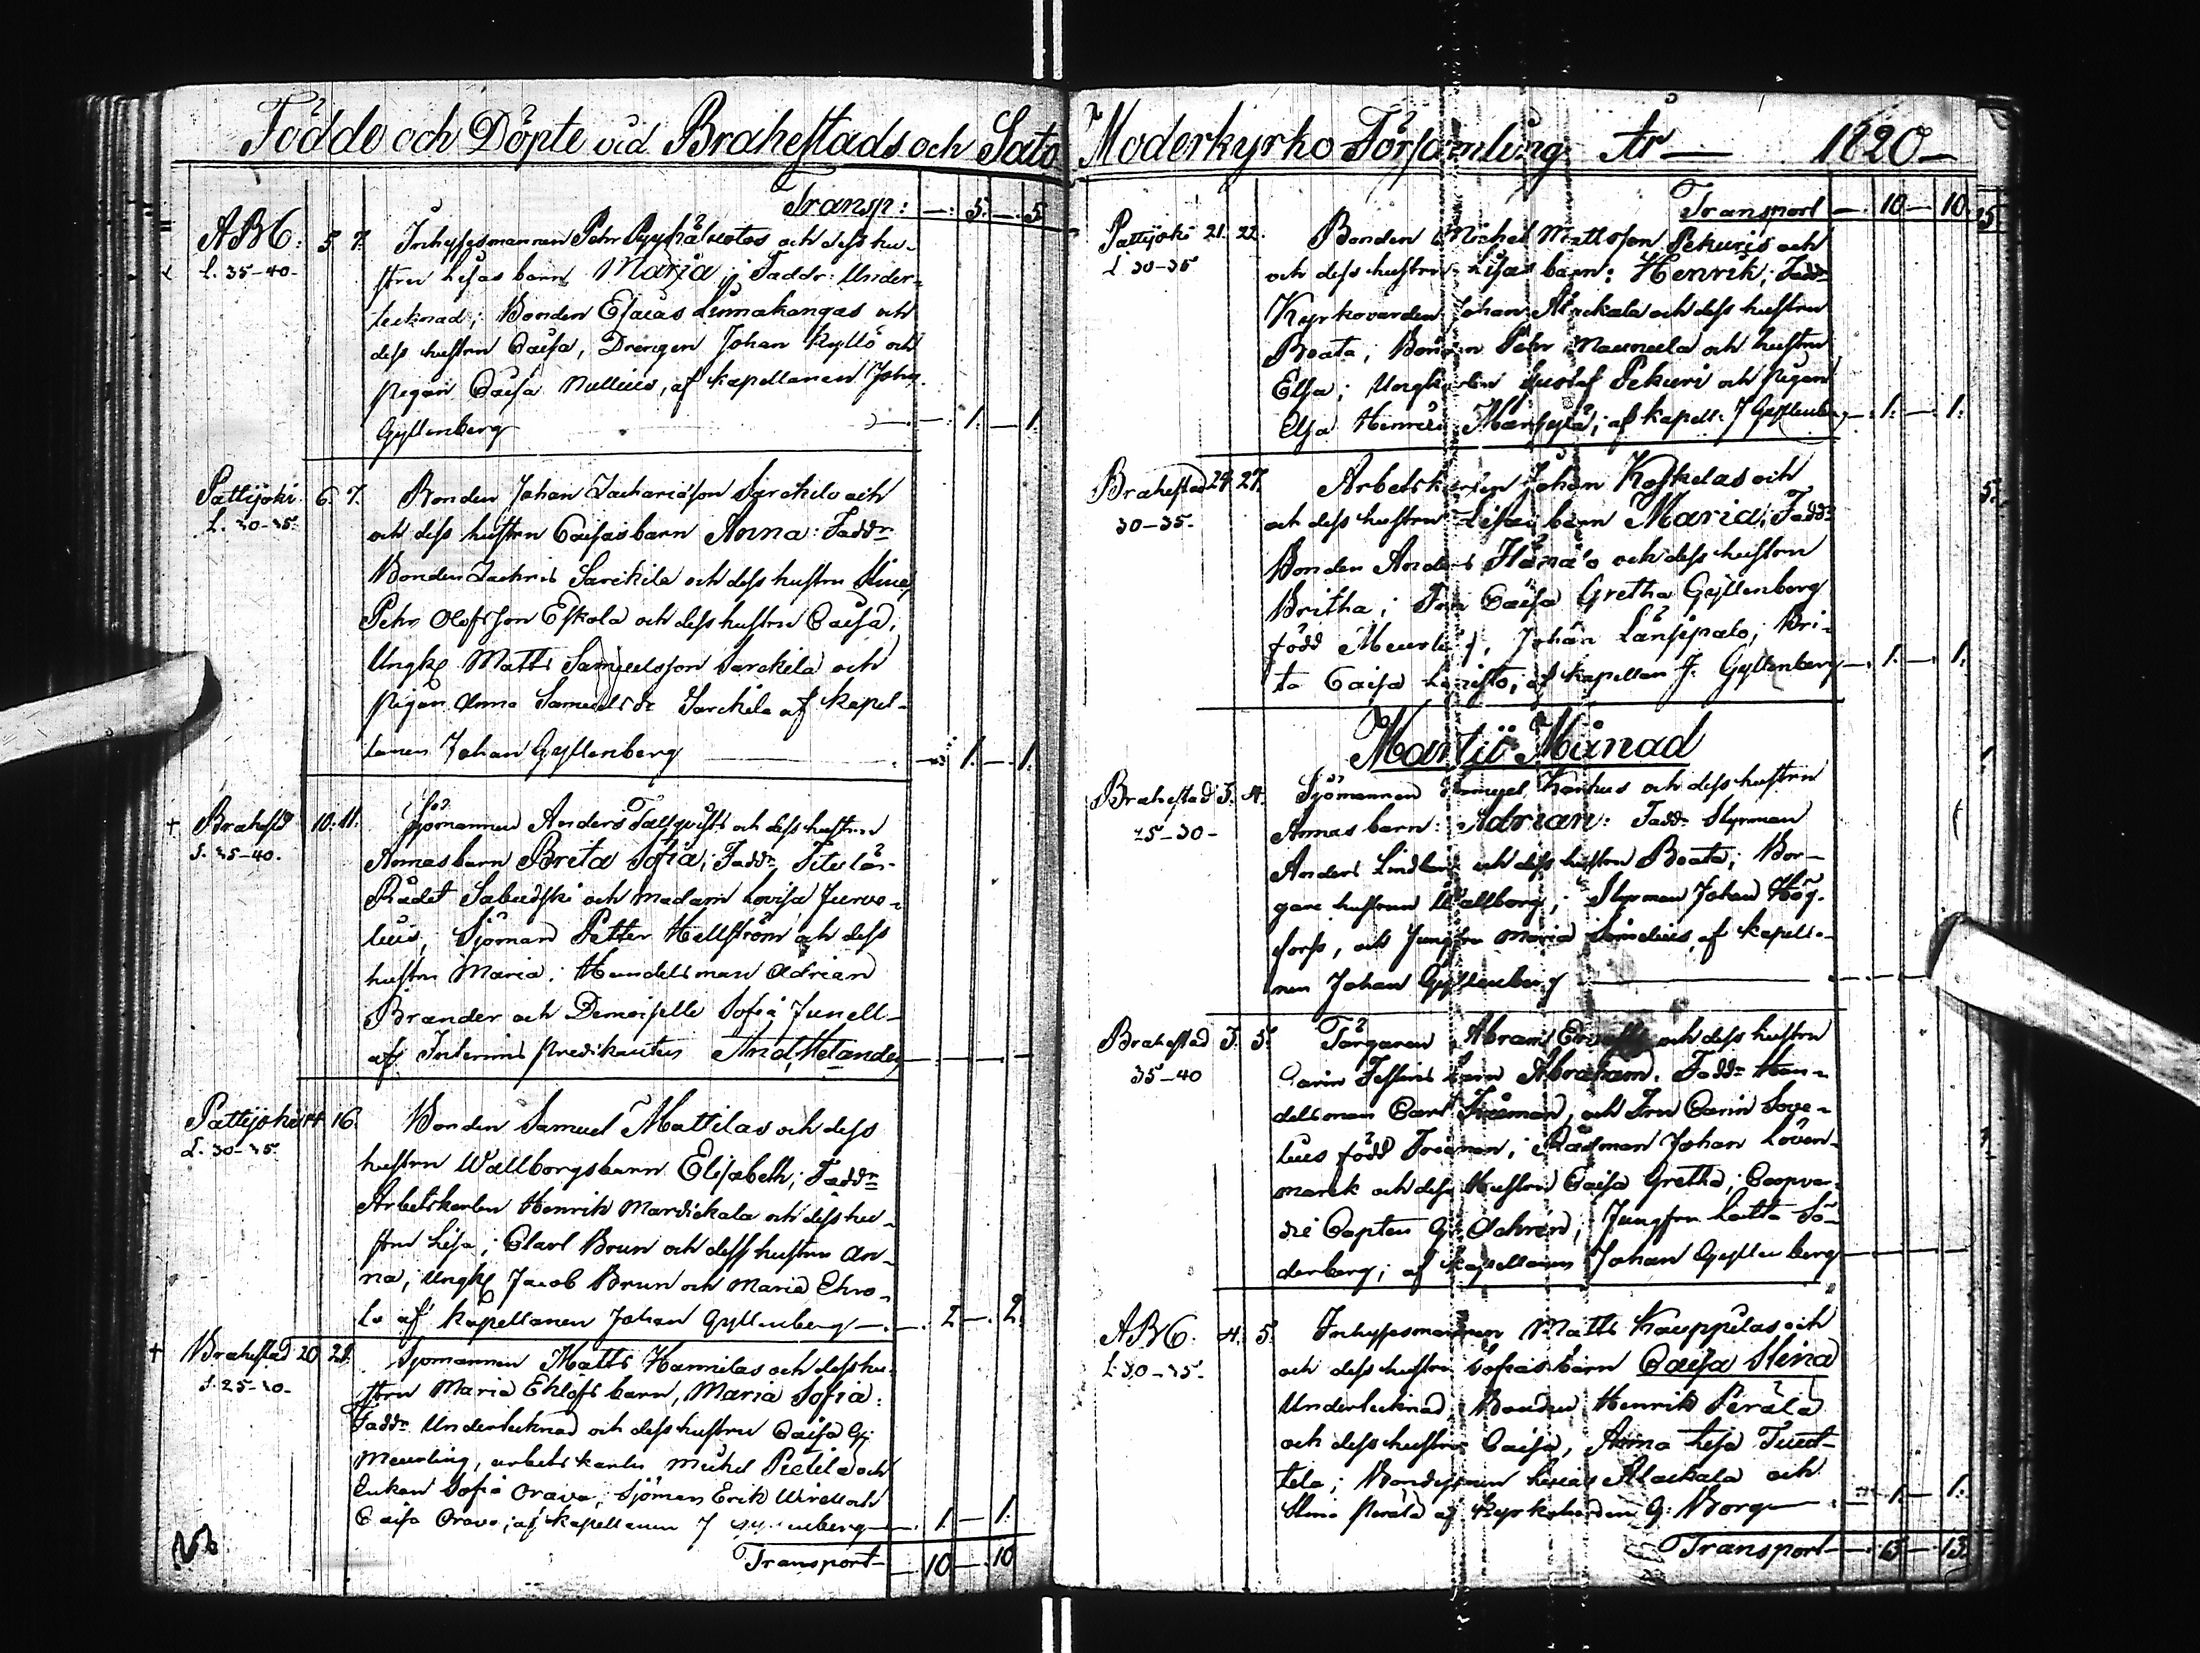 Födde och Döpte vid Brahestads och Salo Moderkyrko Församling År — 1820 —
Transp: — 5. — 5.
ABC: 5 7. Inhysesmannen Pehr Pyyhäluotos och dess hu-
L. 35-40- strus Lisas barn Maria; Faddr: Under-
tecknad; Bonden Esaias Linnakangas och
dess hustru Caisa, Drengen Johan Kyllö och
pigan Caisa Nullius, af kapellanen Johan
Gyllenberg — 1. — 1.
Pattijoki 6. 7. Bonden Johan Zachariasson Sarckilo och
L. 30-35. och dess hustru Caisas barn Anna: Faddr
Bonden Zachris Sarckila och dess hustru Stina,
Pehr Olofsson Eskola och dess hustru Caisa,
Ungk Matts Samuelsson Sarckila och
pigan Anna Samuelsdr Sarckila af kapel-
lanen Johan Gyllenberg — 1. — 1.
+ Brahestd 10. 11. Sjömannen Anders Tallqvists och dess hustrus
S. 35-40. Annas barn Brita Sofia; Faddr Titulär
Rådet Sabudski och Madam Lovisa Jurve-
lius, Sjöman Petter Hellström och dess
hustru Maria; Handelsman Adrian
Brander och Demoiselle Sofia Junell-
af Interims predikanten And. Helander
Pattijoki 14 16. Bonden Samuel Mattilas och dess
L. 30-35 hustru Wallborgs barn Elisabeth; Faddr
Arbetskarlen Henrik Mardickala och dess hu-
stru Lisa; Carl Brun och dess hustru An-
na; Ungk Jacob Brun och Maria Ehro-
la af kapellanen Johan Gyllenberg — 2 — 2.
+ Brahestad 20 21. Sjömannen Matts Hannilas och dess hu-
S. 25-30- stru Maria Ehlofs barn, Maria Sofia:
Faddr Undertecknad och dess hustru Caisa G:
Meurling, arbetskarlen Michel Pietilä och
Enkan Sofia Orava; Sjöman Erik Wirell och
Caisa Orava; af kapellanen J Gyllenberg — 1. — 1.
Transport — 10 — 10
Transport — 10 — 10.
Pattijoki 21. 22. Bonden Michel Mattsson Pekuris och
L. 30-35 och dess hustru Lisas barn: Henrik; Faddr
Kyrkovärden Johan Alackala och dess hustru
Beata; Bonden Pehr Naumula och hustru
Elsa; Ungkarlen Gustaf Pekuri och pigan
Elsa af kapell: J Gyllenberg — 1. — 1.
Brahestad 24. 27. Arbetskarlen Johan Koskelas och
30-35. och dess hustru Lisas barn Maria; Faddr
Bonden Anders och dess hustru
Britha; Fru Caisa Gretha Gyllenberg
född Meurling, Johan Länsipalo, Bri-
ta Caisa af kapellan J. Gyllenberg — 1. — 1.
Martii Månad
Brahestad 3. 4. Sjömannen Samuel Karhus och dess hustru
25-30- Annas barn: Adrian: Faddr Styrman
Anders Lindberg och dess hustru Beata; Bor-
gare hustrun Wallborg; Styrman Johan Hög-
fors, och Jungfru Maria af kapella-
nen Johan Gyllenberg
Brahestad 3. 5. Färgaren Abram och dess hustru
35-40 Carin barn Abraham. Faddr Han-
delsman Carl Frieman, och Fru Carin Sove-
lius född Frieman; Rådman Johan Löven-
marck och dess Hustru Caisa Gretha; Coopver-
die Capten G: Ochren; Jungfru Lotta Sö-
derberg; af kapellanen Johan Gyllenberg
ABC. 4. 5. Inhysesmannen Matts Kauppilas och
L. 30-35. och dess hustru Sofias barn Caisa Stina
Undertecknad, Bonden Henrik Perälä
och dess hustru Caisa, Anna Lisa Tuut-
tila; Bondesonen Alackala och
Stina Perälä af Kyrkoherden G: Borg — 1. — 1.
Transport — 13 — 13.